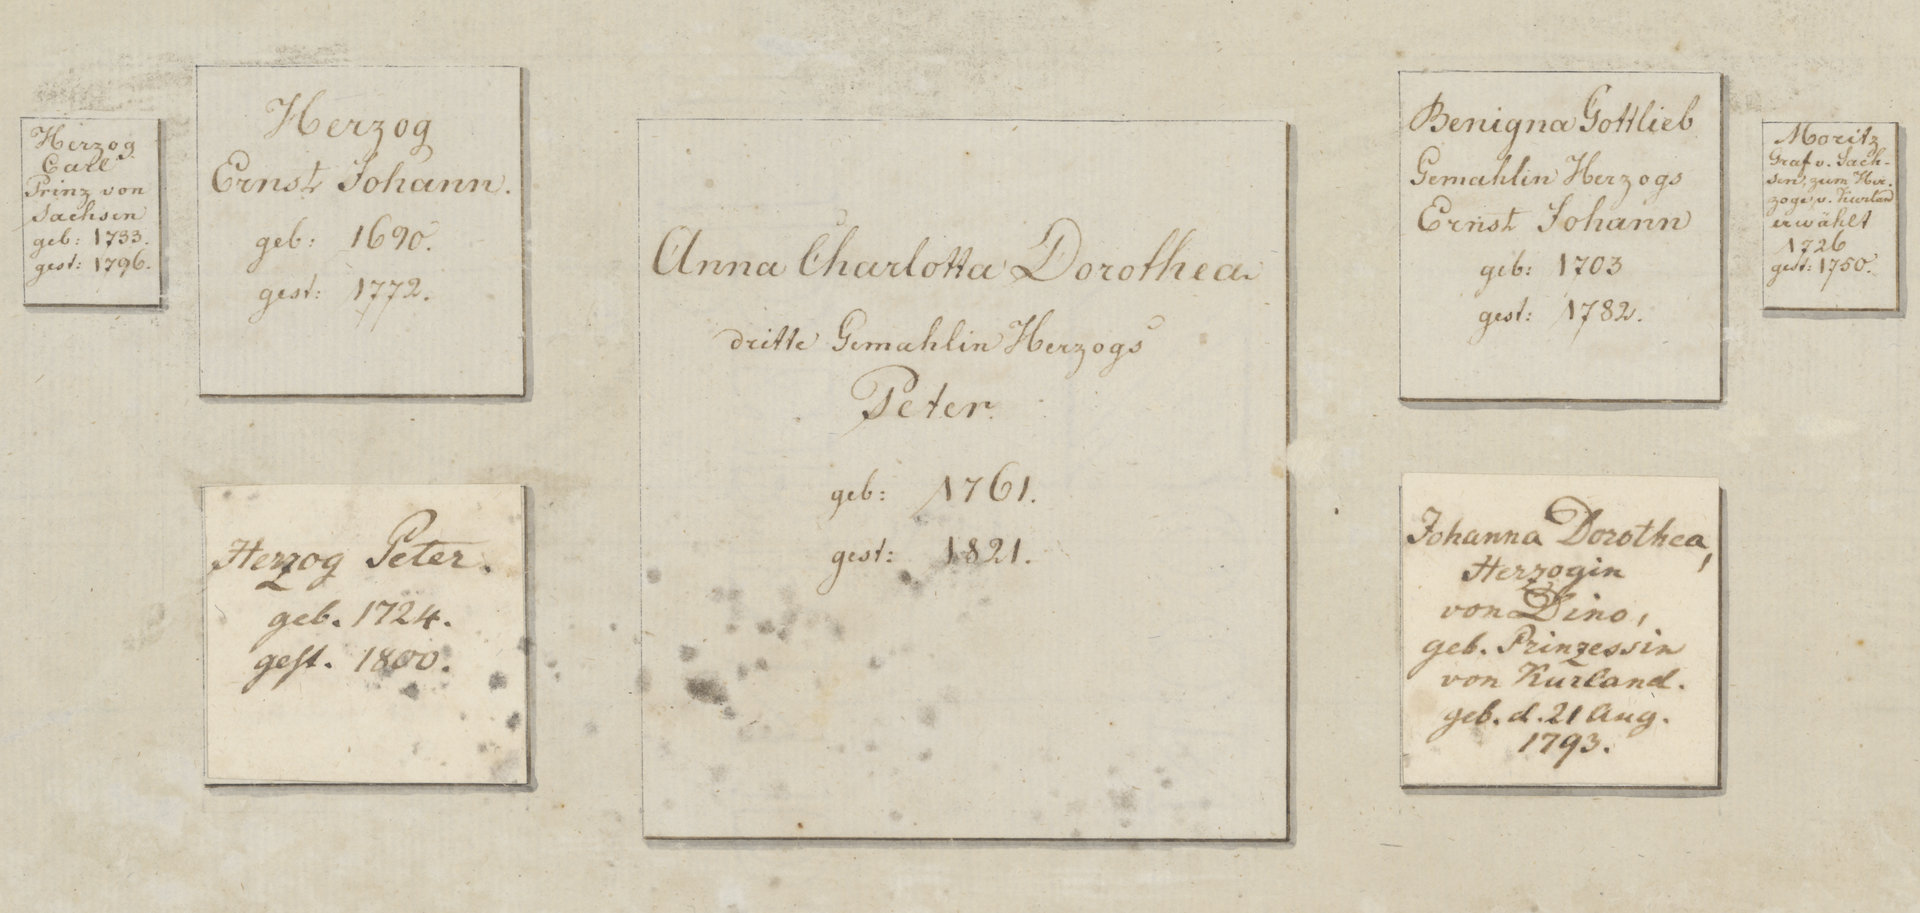 Herzog
Carl
Prinz von
Sachsen
geb: 1733.
gest: 1796.
Herzog
Ernst Johann.
geb: 1690.
gest: 1772.
Anna Charlotta Dorothea.
dritte Gemahlin Herzogs
Peter.
geb: 1761.
gest: 1821.
Benigna Gottlieb
Gemahlin Herzogs
Ernst Johann
geb: 1703
gest: 1782.
Moritz
Graf v. Sach-
sen, zum Her-
zoge v. Kurland
erwählt
1726
gest: 1750.
Herzog Peter.
geb. 1724.
gest. 1800.
Johanna Dorothea,
Herzogin
von Dino,
geb. Prinzessin
von Kurland.
geb. d. 21 Aug.
1793.